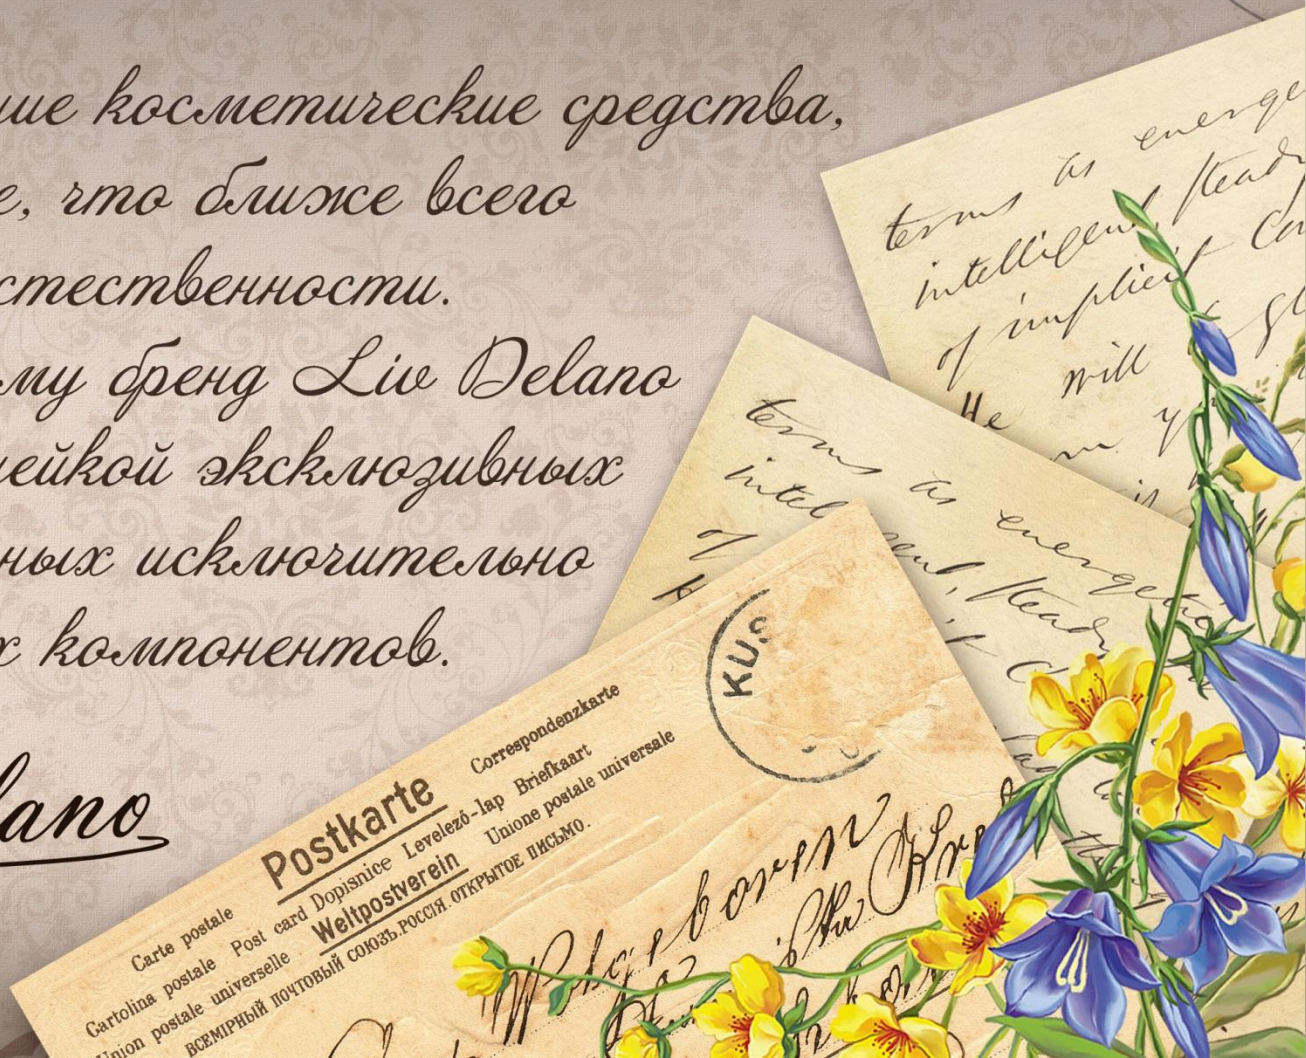 шие косметические средства,
е, что ближе всего
стественности.
му бренд Liv Delano
ейкой эксклюзивных
ных исключительно
х компонентов.
lano
terms as energe
intelligent, stead
of implicit Co
will
He
terms as energetic
intel
of
KUS
Postkarte Correspondenzkarte
Carte postale Post card Dopisnice Levelező-lap Briefkaart
Cartolina postale Weltpostverein Unione postale universale
Union postale universelle
ВСЕМІРНЫЙ ПОЧТОВЫЙ СОЮЗЪ. РОССІЯ. ОТКРЫТОЕ ПИСЬМО.